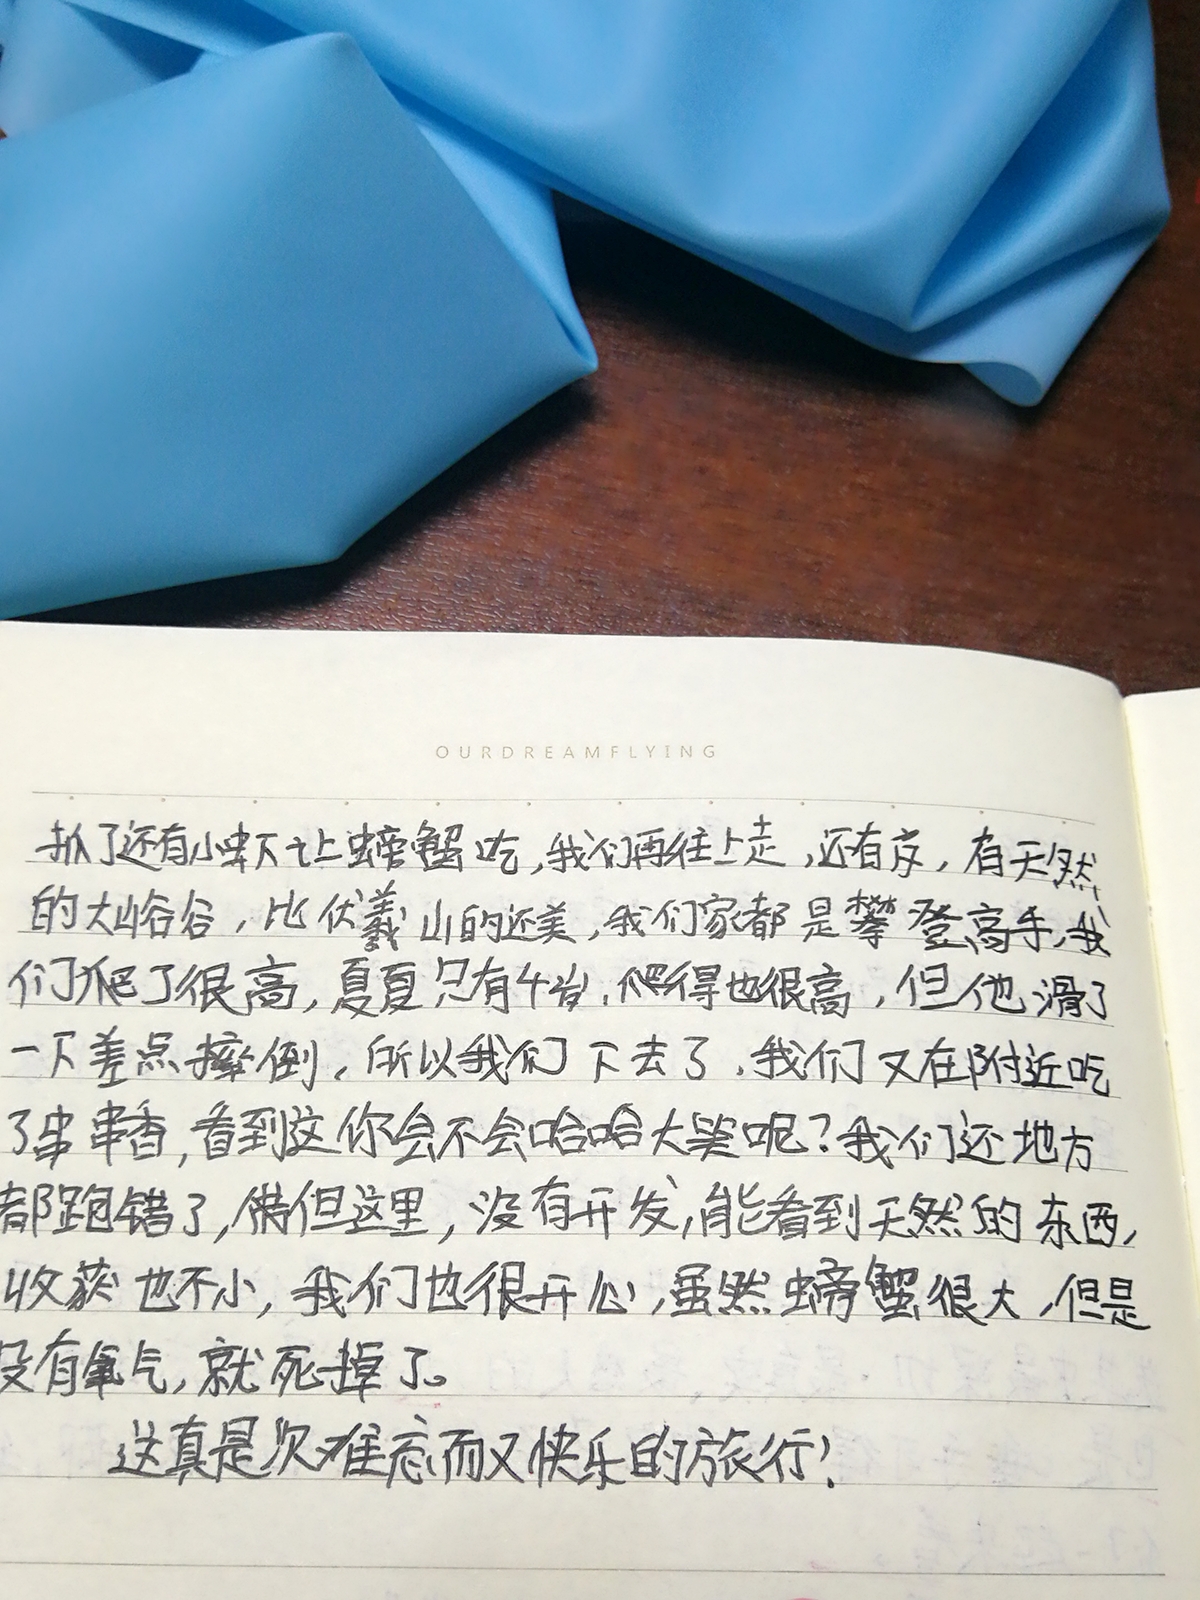 OURDREAMFLYING
抓了还有小虾不让螃蟹吃,我们再往上走,还有, 有天然
的大山谷,比伏羲山的还美,我们家都是攀登高手,我
们爬了很高,夏夏只有4岁,爬得也很高,但他滑了
一下差点摔倒,所以我们下去了,我们又在附近吃
了串串香,看到这你会不会哈哈大笑呢?我们还地方
都跑错了,但这里,没有开发,能看到天然的东西,
收获也不小,我们也很开心,虽然螃蟹很大,但是
没有氧气,就死掉了。
这真是次难忘而又快乐的旅行!